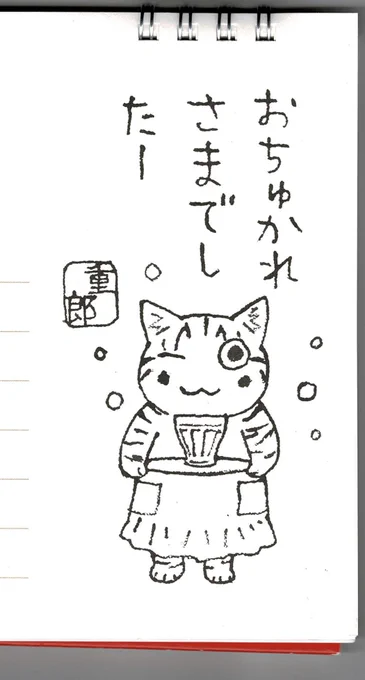 おちゅかれ
さまでし
たー
重郎